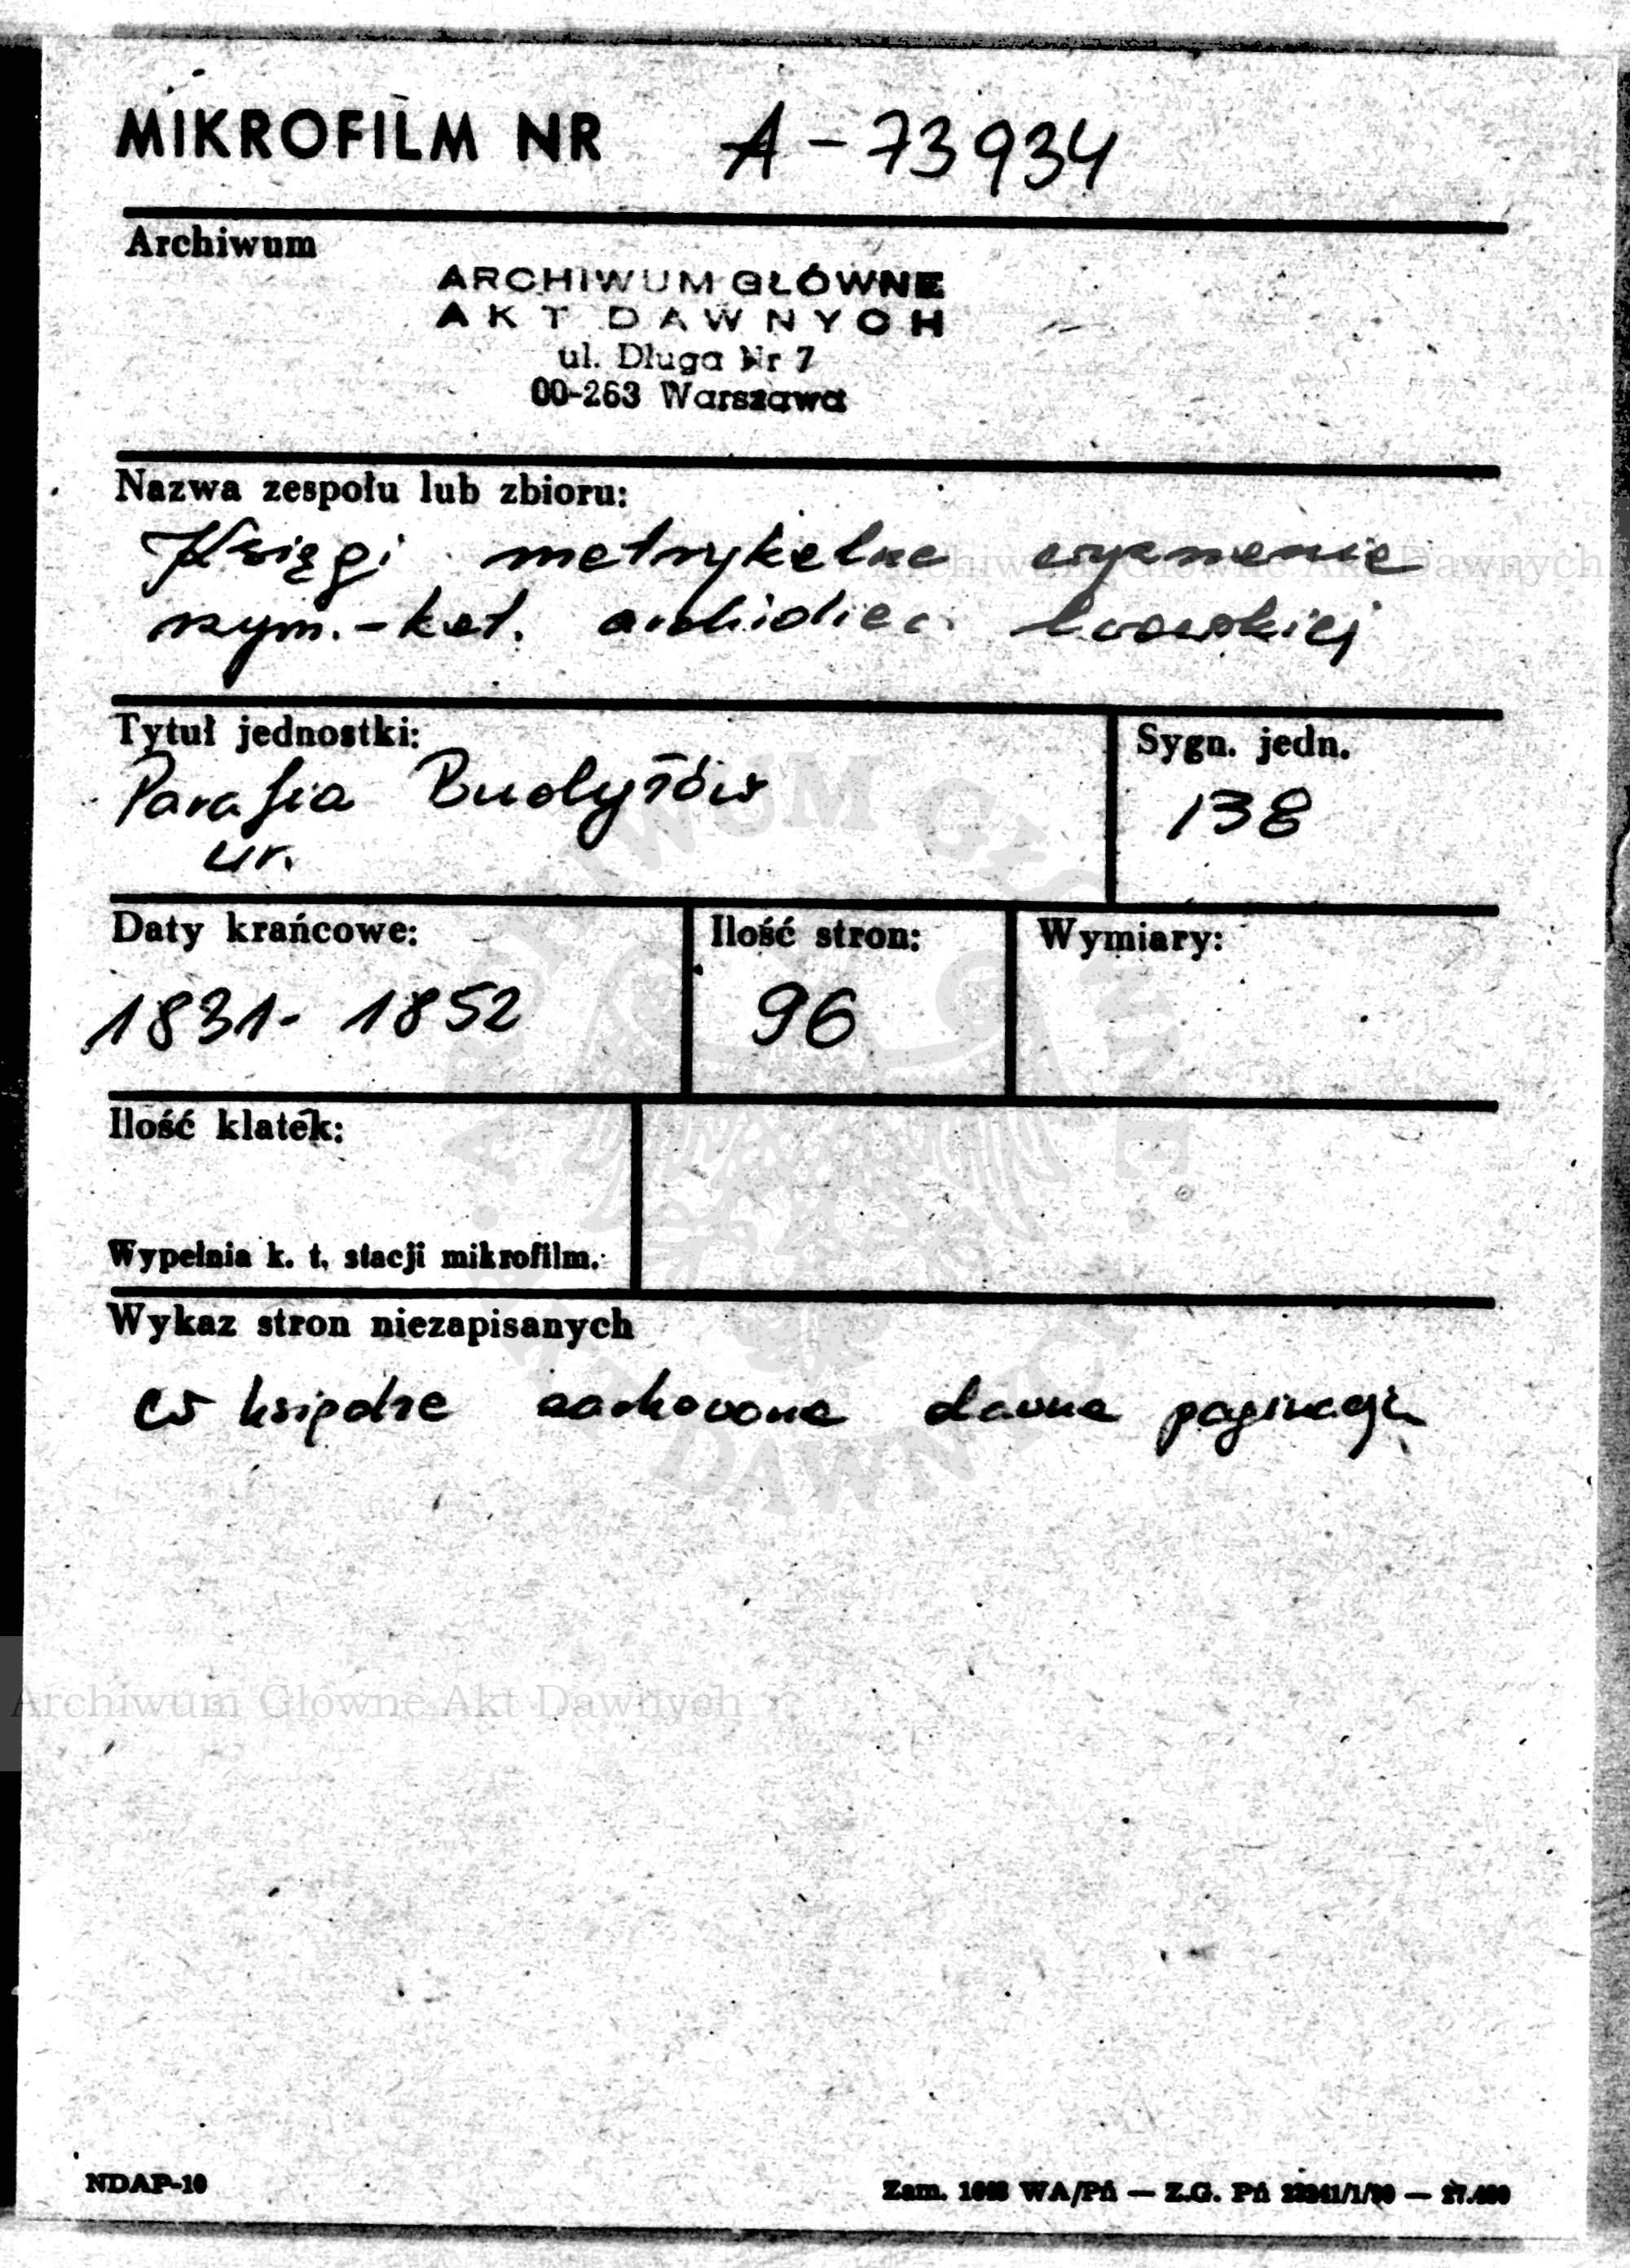 MIKROFILM NR A-73934
Archiwum
ARCHIWUM GŁÓWNE
AKT DAWNYCH
ul. Długa Nr 7
00-263 Warszawa
Nazwa zespołu lub zbioru:
Księgi metrykalne wyznania
rzym.-kat. archidiec. lwowskiej
Tytuł jednostki:
Parafia Budyłów
ur.
Sygn. jedn.
138
Daty krańcowe:
1831-1852
Ilość stron:
96
Wymiary:
Ilość klatek:
Wypełnia k. t. stacji mikrofilm.
Wykaz stron niezapisanych
w księdze zachowana dawna paginacja
Archiwum Główne Akt Dawnych
Archiwum Główne Akt Dawnych
ARCHIWUM GŁÓWNE
AKT DAWNYCH
NDAP-10
Zam. WA/Pń — Z.G. Pń